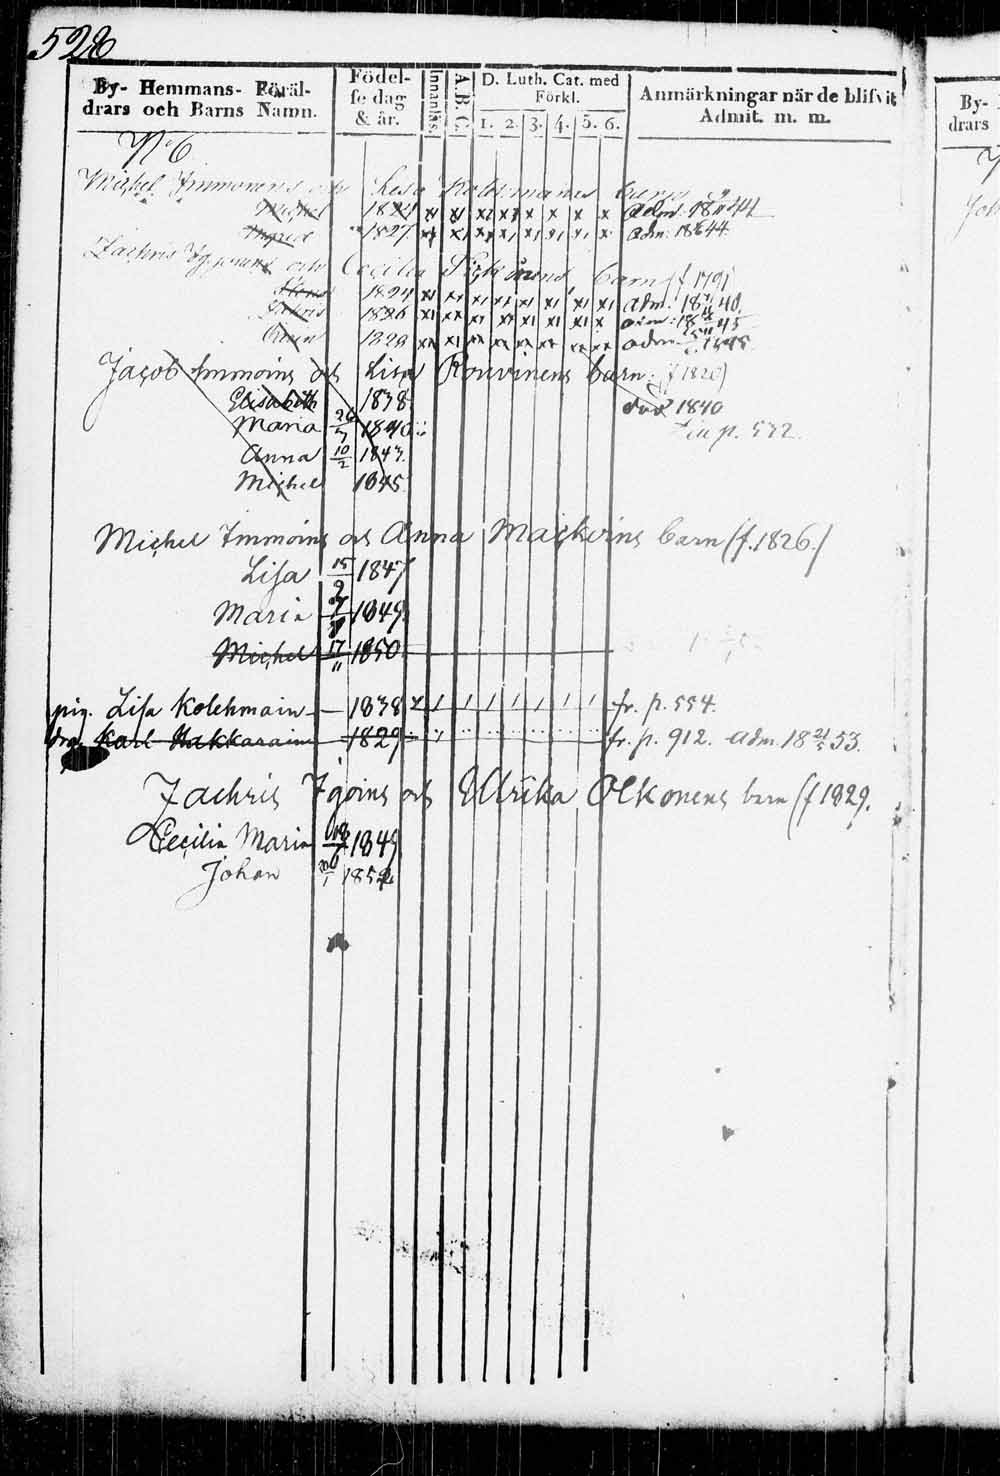 528
By- Hemmans- Föräl-
drars och Barns Namn.
Födel-
se dag
& år.
Innanläs.
A.B.C.
D. Luth. Cat. med
Förkl.
1. 2. 3. 4. 5. 6.
Anmärkningar när de blifvit
Admit. m. m.
By-
drars
No 6
Michel Immonens och Lisa Kolehmains barn
Michel 1824 adm. 44
Ingrid 1827 adm: 18 44
Zachris och Cecilia barn f 1791
1824 adm. 18 40
1826 adm: 18 45
1829 adm 1845
Jacob Immoins och Lisa Rouvinens barn (f 1820)
Elisabeth 1838 död 1840
Maria 26/7 1840 p. 572
Anna 10/2 1843
Michel 1845
Michel Immoins och Anna Maçkoins barn (f. 1826.)
Lisa 15/9 1847
Maria 1849
Michel 17/11 1850
pig. Lisa Kolehmain 1838 fr. p. 554.
drg. Karl Hakkarain 1829 fr. p. 912. adm. 18 21/5 53.
Zachris Igoins och Ulrika Olkonens barn (f 1829.
Cecilia Maria 18/6 1849
Johan 1852